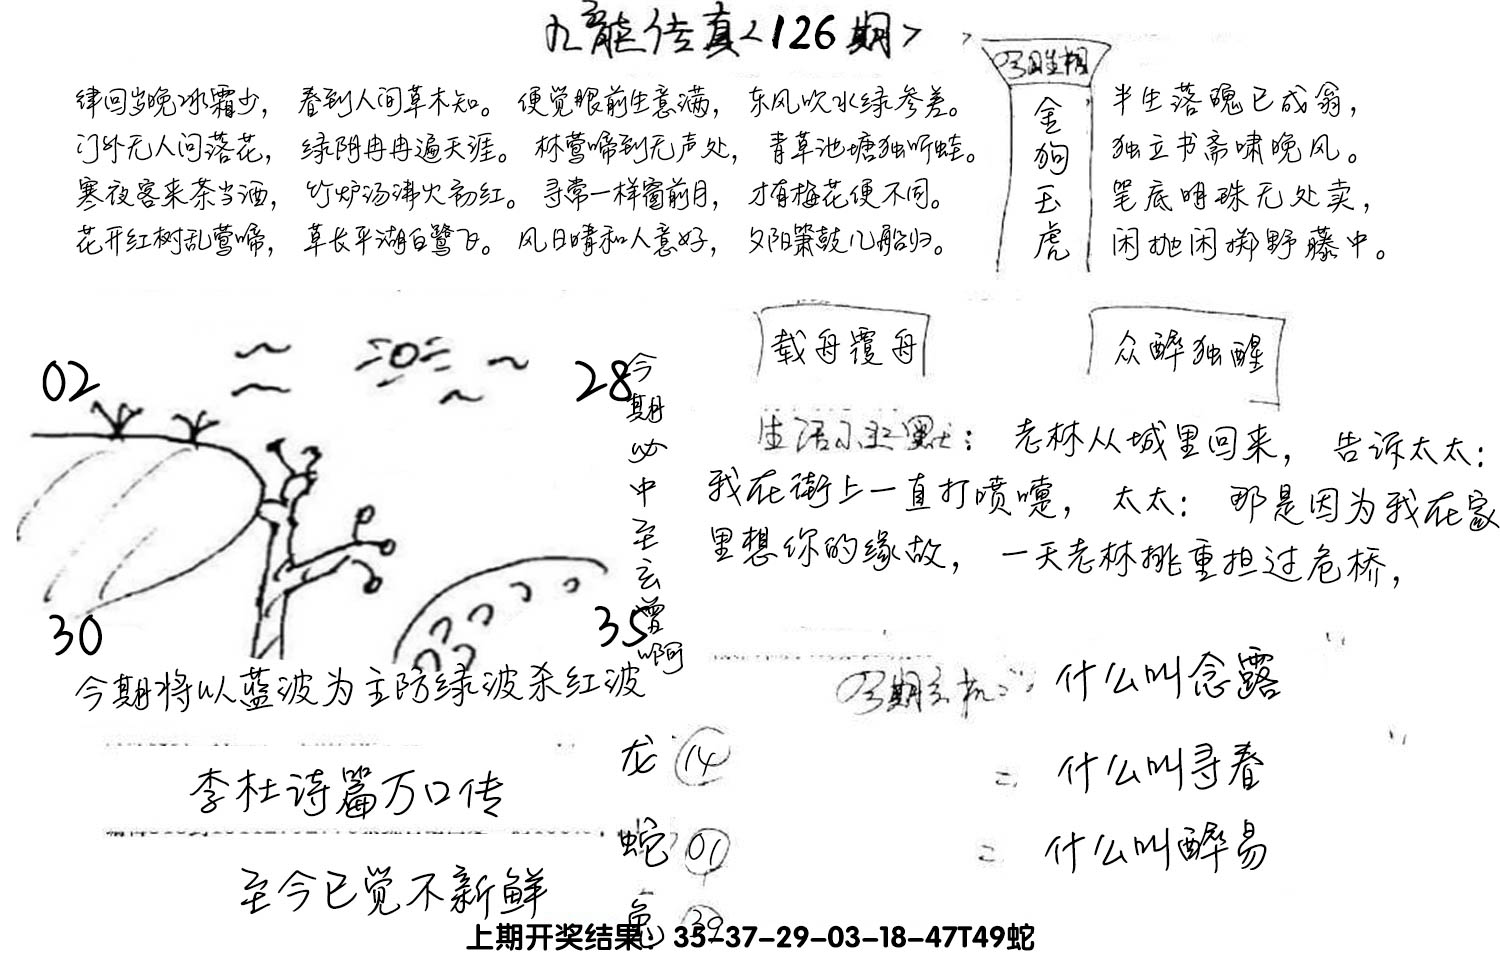 九龙传真<126期>
律回岁晚冰霜少，春到人间草木知。便觉眼前生意满，东风吹水绿参差。
门外无人问落花，绿阴冉冉遍天涯。林莺啼到无声处，青草池塘独听蛙。
寒夜客来茶当酒，竹炉汤沸火初红。寻常一样窗前月，才有梅花便不同。
花开红树乱莺啼，草长平湖白鹭飞。风日晴和人意好，夕阳箫鼓几船归。
金狗玉虎
半生落魄已成翁，
独立书斋啸晚风。
笔底明珠无处卖，
闲抛闲掷野藤中。
02
28
30
35
今期必中至玄曾啊
今期将以蓝波为主防绿波杀红波
载舟覆舟
众醉独醒
生活小幽默：老林从城里回来，告诉太太：
我在街上一直打喷嚏，太太：那是因为我在家
里想你的缘故，一天老林挑重担过危桥，
今期玄机：什么叫念露
= 什么叫寻春
= 什么叫醉易
李杜诗篇万口传
至今已觉不新鲜
龙 14
蛇 01
兔 39
上期开奖结果：35-37-29-03-18-47T49蛇